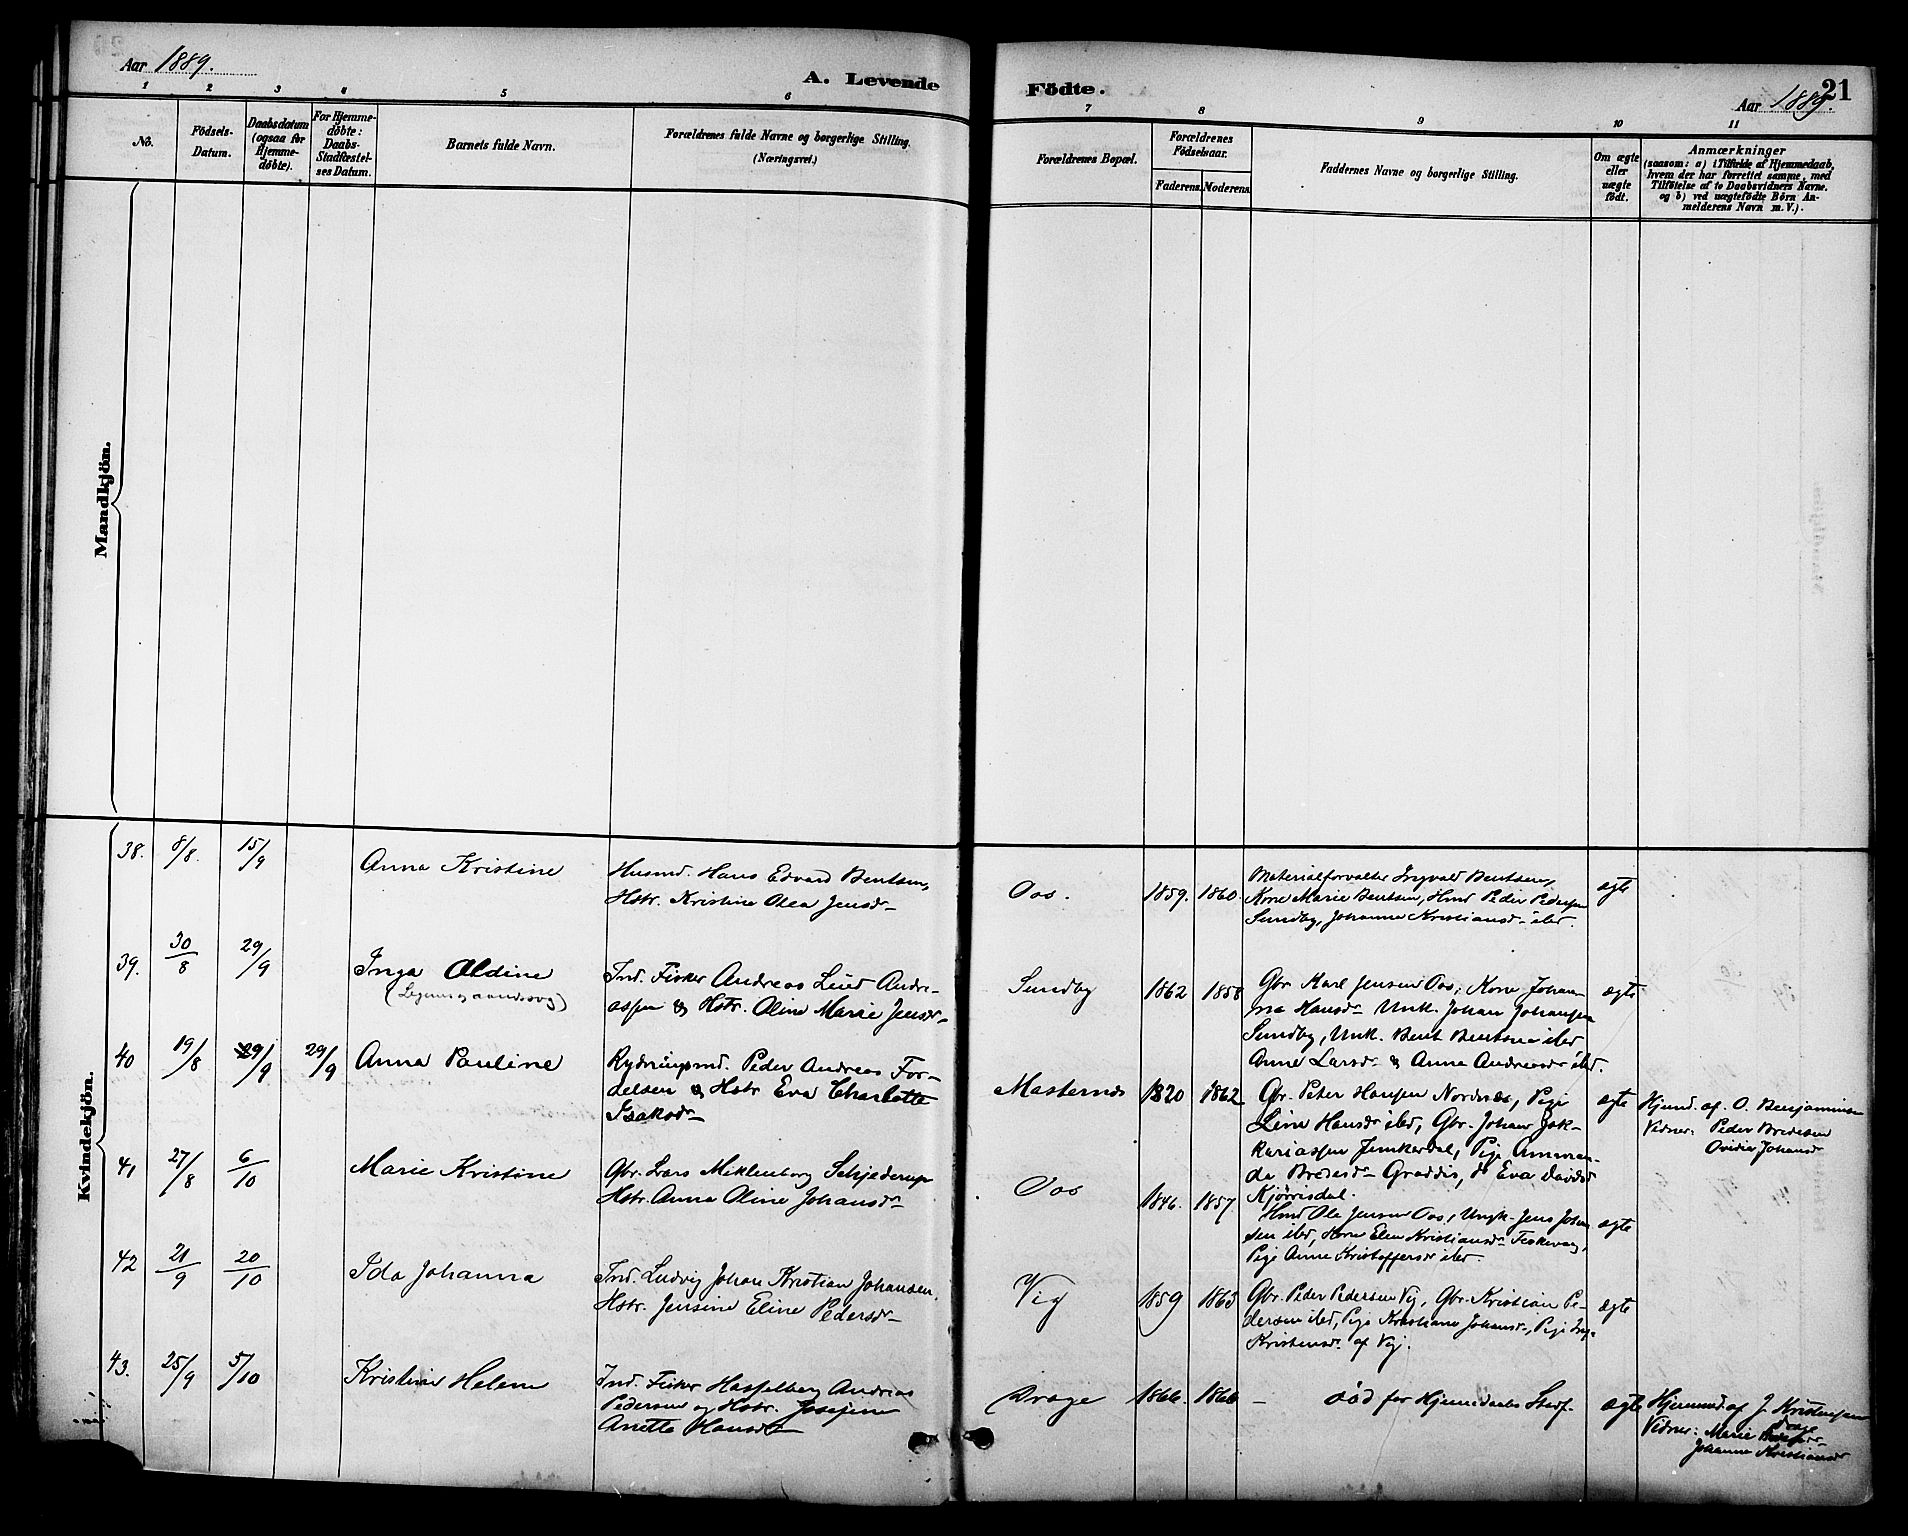 Aar 1889.
A. Levende
Födte.
21
Aar 1889.
1 2 3 4 5 6 7 8 9 10 11
No.
Födsels-
Datum.
Daabsdatum
(ogsaa for
Hjemme-
döbte).
For Hjemme-
döbte:
Daabs-
Stadfæstel-
ses Datum.
Barnets fulde Navn.
Forældrenes fulde Navne og borgerlige Stilling.
(Næringsvei.)
Forældrenes Bopæl.
Forældrenes
Födselsaar.
Faderens. Moderens.
Faddernes Navne og borgerlige Stilling.
Om ægte
eller
uægte
födt.
Anmærkninger
(saasom: a) i Tilfælde af Hjemmedaab,
hvem der har forrettet samme, med
Tilföielse af to Daabsvidners Navne.
og b) ved uægtefödte Börn An-
melderens Navn m. V.).
Mandkjön.
Kvindekjön.
38. 8/8. 15/9
Anna Kristine
Husmd. Hans Edvard Bentsen,
Hstr. Kristine Olea Jensdr
Oos.
1859. 1860.
Materialforvalter Ingvald Bentsen,
Kone Marie Bentsen, Hmd Peder Pedersen
Sundby, Johanna Kristiansdr ibd.
ægte
39. 30/8 29/9
Inga Aldine
Ind. Fisker Andreas Lind Andre-
assen & Hstr. Oline Marie Jensdr
Sundby
1862 1858
Gbr Karl Jensen Oos, Kone Johan-
na Hansdr Unk. Johan Johansen
Sundby, Unk. Bent Bentsen ibd
Anne Larsdr & Anna Andreasdr ibd.
ægte
40 19/8 29/9 29/9
Anna Pauline
Rydningsmd. Peder Andreas For-
delsen & Hstr Eva Charlotte
Isaksdr
Masternes
1820 1862
Gbr. Peter Hansen Nordnæs, Pige
Lina Hansdr ibd, Gbr. Johan Jak-
Junkerdal, Pige Amman-
da Bredesdr Graddis, do Eva Davidsdr
Kjörrisdal.
ægte
Hjemd. af. O. Benjaminsen
Vidner: Peder Bredesen
Ovidia Johansdr
41 27/8 6/10
Marie Kristine
Gbr. Lars Meklenborg Schjederup
Hstr. Anna Oline Johansdr
Oos
1846. 1857.
Hmd Ole Jensen Oos, Ungk. Jens Johan-
sen ibd, Kone Elen Kristiansdr Fiskevaag,
Pige Anne Kristoffersdr ibd.
ægte
42 21/9 20/10
Ida Johanna
Ind. Ludvig Johan Kristian Johansen.
Hstr. Jensine Eline Pedersdr
Vig
1859 1863
Gbr. Peder Pedersen Vig, Gbr. Kristian Pe-
dersen ibd, Pige Kristiane Johansdr, Pige
Kristensdr af Vig.
ægte
43. 25/9 5/10
Kristine Helene
Ind. Fisker Hasselberg Andreas
Pedersen og Hstr. Josefine
Anette Hansdr
Drage
1866. 1866
død før Hjemmedaabs Stadf.
ægte
Hjemmd af J. Kristensen
Drage
Vidner: Marie
Johanna Kristiansdr